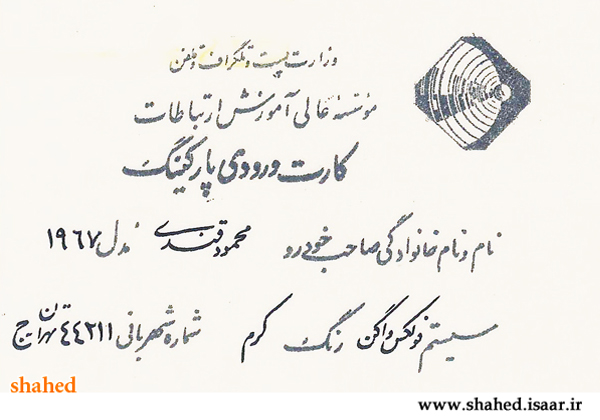 وزارت پست و تلگراف و تلفن
مؤسسه عالی آموزش ارتباطات
کارت ورودی پارکینگ
نام و نام خانوادگی صاحب خودرو محمود قندی مدل ۱۹۶۷
سیستم فولکس واگن رنگ کرم شماره شهربانی ۴۴۲۱۱ تهران ج
shahed
www.shahed.isaar.ir